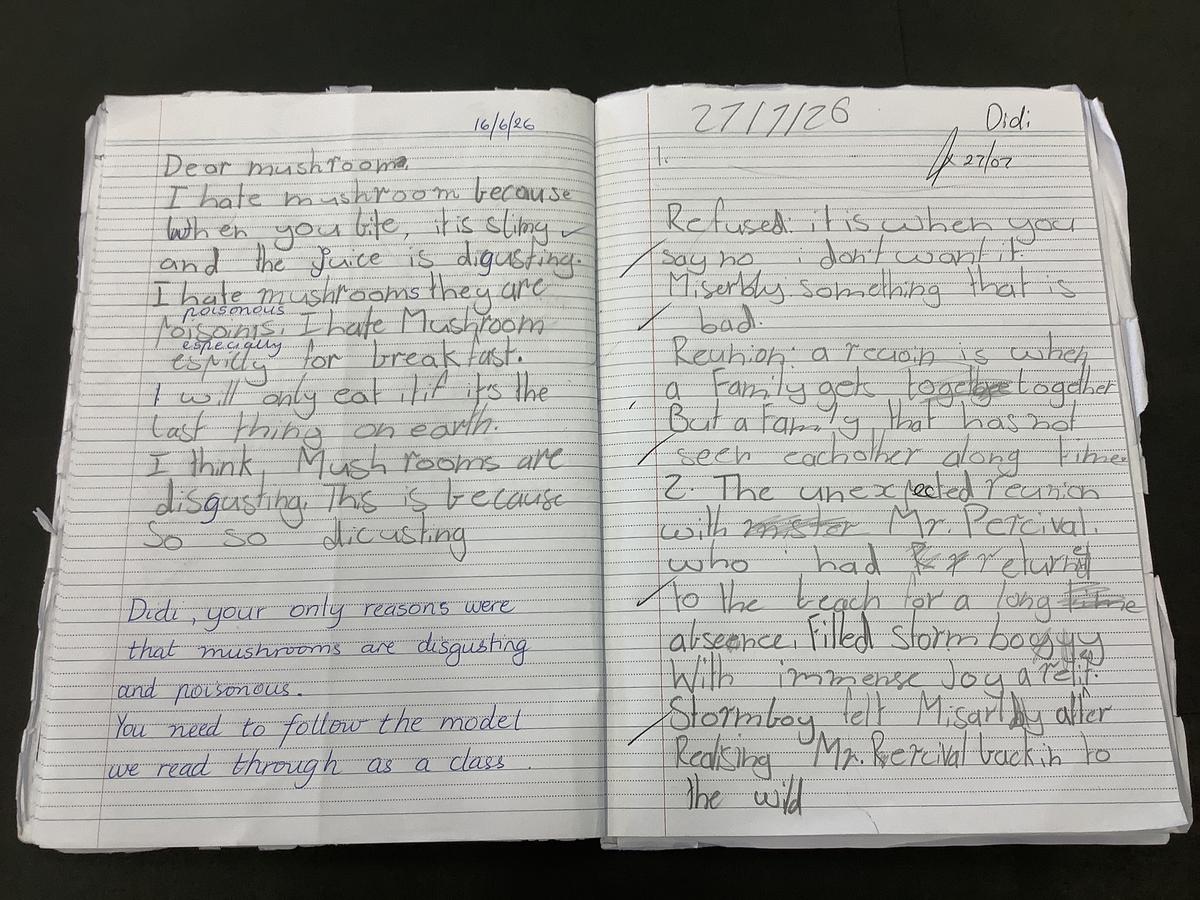 16/6/26
Dear mushroom.
I hate mushroom because
when you bite, it is slimy
and the juice is digusting.
I hate mushrooms they are
poisonous
Poisoinis. I hate Mushroom
especially
espilly for breakfast.
I will only eat it if it's the
last thing on earth.
I think, Mushrooms are
disgusting. This is because
So so dicusting
Didi, your only reasons were
that mushrooms are disgusting
and poisonous.
You need to follow the model
we read through as a class.
27/7/26
Didi
27/07
1.
Refused: it is when you
say no i don't want it.
Miserbly something that is
bad.
Reunion: a recuoin is when
a Family gets together
But a Family that has not
seen eachother along time
2. The unexpected reunion
with Mr. Percival.
who had returned
to the beach for a long
abseence, Filled Storm boy
With immense Joy a relif.
Stormboy felt Misarbly after
Realising Mr. Percival back in to
the wild